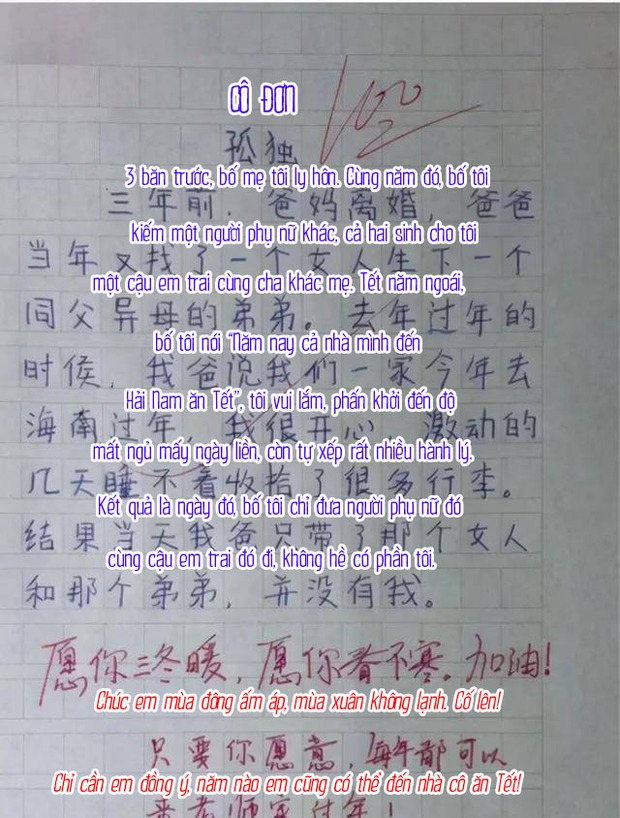 CÔ ĐƠN
100
孤独
3 băn trước, bố mẹ tôi ly hôn. Cùng năm đó, bố tôi
三年前，爸妈离婚，爸爸
kiếm một người phụ nữ khác, cả hai sinh cho tôi
当年又找了一个女人生下一个
một cậu em trai cùng cha khác mẹ. Tết năm ngoái,
同父异母的弟弟。去年过年的
bố tôi nói "Năm nay cả nhà mình đến
时候，我爸说我们一家今年去
Hải Nam ăn Tết", tôi vui lắm, phấn khởi đến độ
海南过年，我很开心 激动的
mất ngủ mấy ngày liền, còn tự xếp rất nhiều hành lý.
几天睡不着收拾了很多行李。
Kết quả là ngày đó, bố tôi chỉ đưa người phụ nữ đó
结果当天我爸只带了那个女人
cùng cậu em trai đó đi, không hề có phần tôi.
和那个弟弟，并没有我。
愿你三冬暖，愿你春不寒。加油！
Chúc em mùa đông ấm áp, mùa xuân không lạnh. Cố lên!
只要你愿意，每年都可以
Chỉ cần em đồng ý, năm nào em cũng có thể đến nhà cô ăn Tết!
来老师家过年！